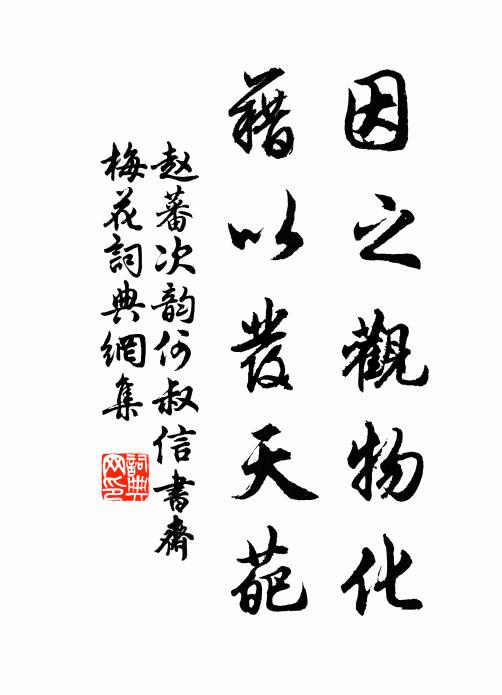 因之觀物化
藉以發天葩
赵蕃次韵何叔信書齋
梅花詞典網集
詞典
网印